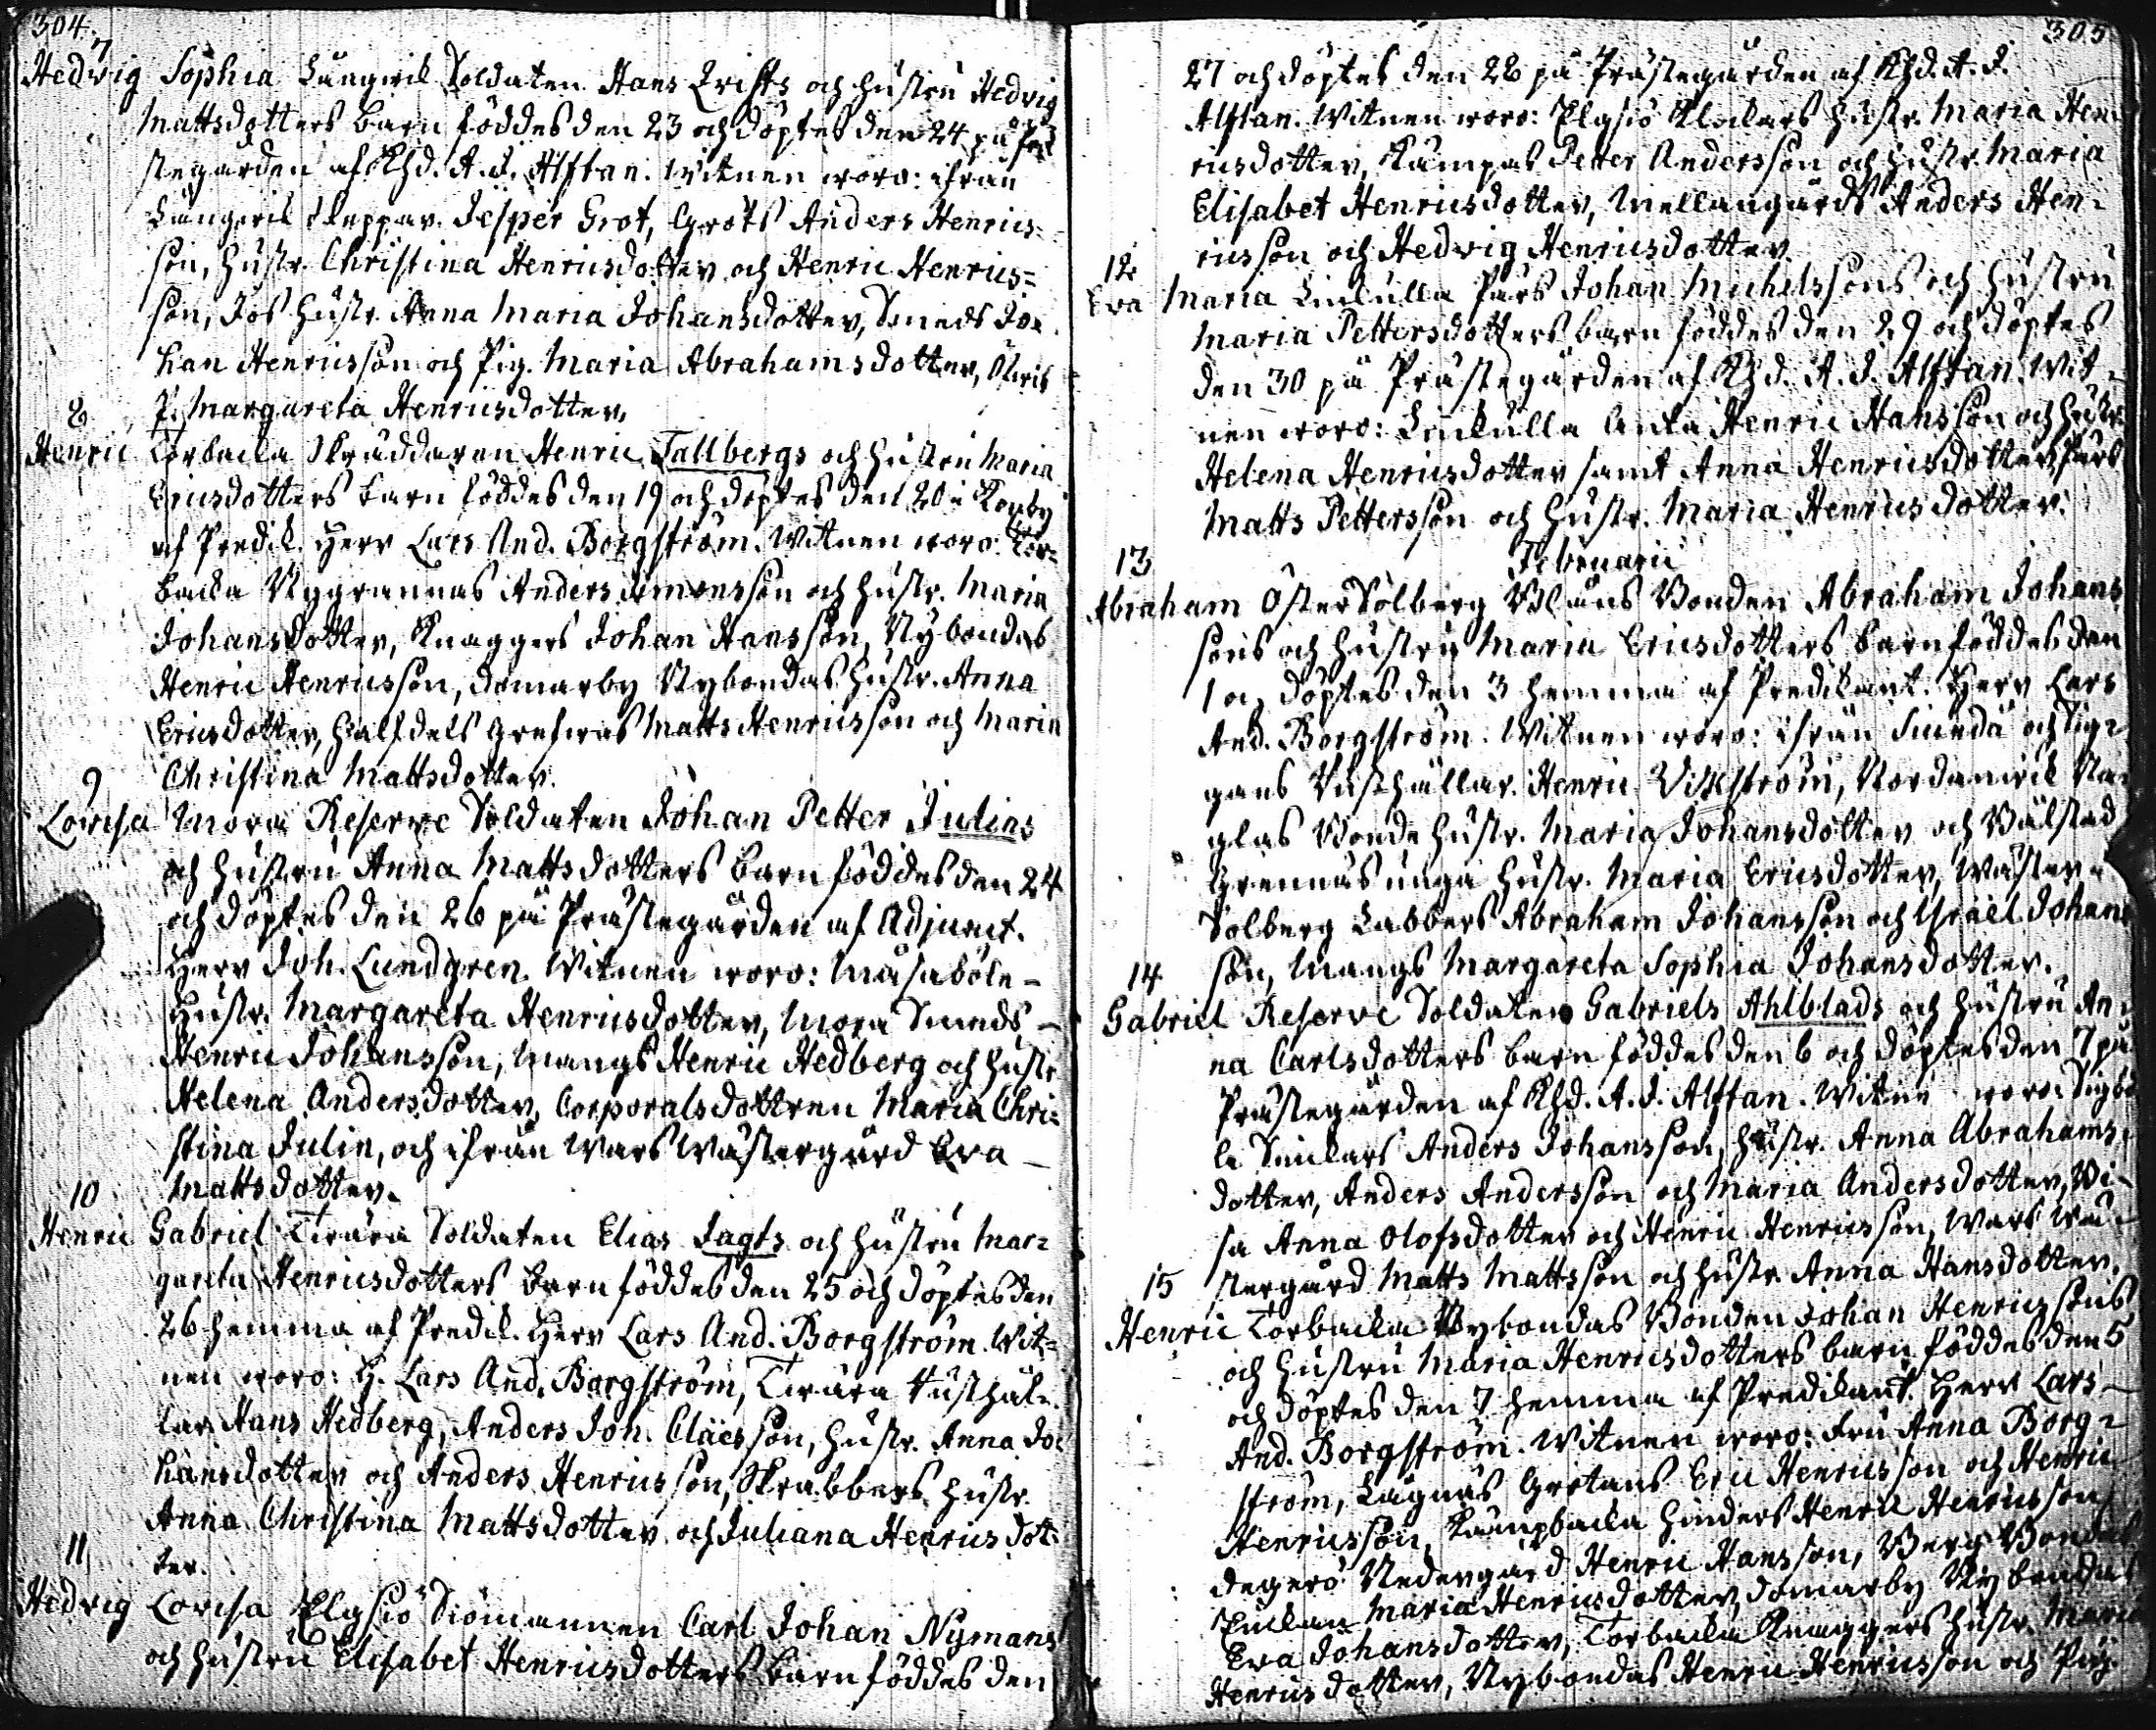 304.
7
Hedvig Sophia Långwik Soldaten Hans Qvists och hustru Hedvig
Mattsdotters barn föddes den 23 och döptes den 24 på Præ
stegården af Khd. A. J. Alftan. Witnen woro: ifrån
Långwik Skeppar. Jesper Grot, Grots Anders Henrics-
son, hustr. Christina Henricsdotter och Henric Henrics-
son, Jos hustr. Anna Maria Johansdotter, Smeds Jo-
han Henricsson och Pig. Maria Abrahamsdotter,
P. Margareta Henricsdotter.
8
Henric Torbacka Skräddaren Henric Tallbergs och hustru Maria
Ericsdotters barn föddes den 19 och döptes den 20 i Kopby
af Predik. Herr Lars And. Borgström. Witnen woro: Tor-
backa Nygrannas Anders Simonsson och hustr. Maria
Johansdotter, Knaggers Johan Hansson, Nybondas
Henric Henricsson, Domarby Nybondas hustr. Anna
Ericsdotter, Halfdels Grefwas Matts Henricsson och Maria
Christina Mattsdotter.
9
Lowisa Mora Reserve Soldaten Johan Petter Julins
och hustru Anna Mattsdotters barn föddes den 24
och döptes den 26 på Prästegården af Adjunct.
Herr Joh. Lundgren. Witnen woro: Måsaböle
Hustr. Margareta Henricsdotter, Mora Smeds
Henric Johansson, Mangs Henric Hedberg och hustr
Helena Andersdotter, Corporalsdottren Maria Chri-
stina Julin, och ifrån Wars Wästergård Eva
Mattsdotter.
10
Henric Gabriel Tirära Soldaten Elias Jagts och hustru Mar-
gareta Henricsdotters barn föddes den 25 och döptes den
26 hemma af Predik. Herr Lars And. Borgström. Wit-
nen woro: H. Lars And. Borgström, Tirära Rusthål-
lar. Hans Hedberg, Anders Joh. Claesson, hustr. Anna Jo-
hansdotter och Anders Henricsson, Skrabbers hustr.
Anna Christina Mattsdotter och Juliana Henricsdot-
ter.
11
Hedvig Lovisa Elgsiö Siömannen Carl Johan Nymans
och hustru Elisabet Henricsdotters barn föddes den
305
27 och döptes den 28 på Prästegården af Khd. A. J.
Alftan. Witnen woro: Elgsiö Klockars hustr. Maria Hen-
ricsdotter, Kämpas Petter Andersson och hustr. Maria
Elisabet Henricsdotter, Mellangårds Anders Hen-
ricsson och Hedvig Henricsdotter.
12
Eva Maria Linkulla Pärs Johan Michelssons och hustru
Maria Pettersdotters barn föddes den 29 och döptes
den 30 på Prästegården af Khd. A. J. Alftan. Wit-
nen woro: Linkulla Anka Henric Hansson och hustr.
Helena Henricsdotter samt Anna Henricsdotter, Pärs
Matts Pettersson och hustr. Maria Henricsdotter.
Februarii
13
Abraham Öster Solberg Blåns Bonden Abraham Johans-
sons och hustru Maria Ericsdotters barn föddes den
1 och döptes den 3 hemma af Predikant. Herr Lars
And. Borgström. Witnen woro: ifrån Svineda och Sig-
gans Rusthållar. Henric Wikström, Nordanwik Na-
glas Bonde hustr. Maria Johansdotter och Bålstad
Grennäs unga hustr. Maria Ericsdotter, Wäster
Solberg Labbers Abraham Johansson och Israel Johans
son, Mangs Margareta Sophia Johansdotter.
14
Gabriel Reserve Soldaten Gabriels Ahlblads och hustru An-
na Carlsdotters barn föddes den 6 och döptes den 7 på
Prästegården af Khd. A. J. Alftan. Witne woro: Sigbö
le Snickars Anders Johansson, hustr. Anna Abrahams-
dotter, Anders Andersson och Maria Andersdotter, Wi-
sa Anna Olofsdotter och Henric Henricsson, Wars Wä-
stergård Matts Mattsson och hustr. Anna Hansdotter.
15
Henric Torbacka Nybondas Bonden Johan Henricssons
och hustru Maria Henricsdotters barn föddes den 5
och döptes den 7 hemma af Predikant. Herr Lars
And. Borgström. Witnen woro: Fru Anna Borg-
ström, Lagnäs Gretans Eric Henricsson och Henric
Henricsson, Kämpbacka Hinders Henric Henricsson,
Degerö Nedergård Henric Hansson, Berg Bondas
Enckan Maria Henricsdotter, Domarby Nybondas
Eva Johansdotter, Torbacka Knaggers hustr. Maria
Henricsdotter, Nybondas Henric Henricsson och Pig.